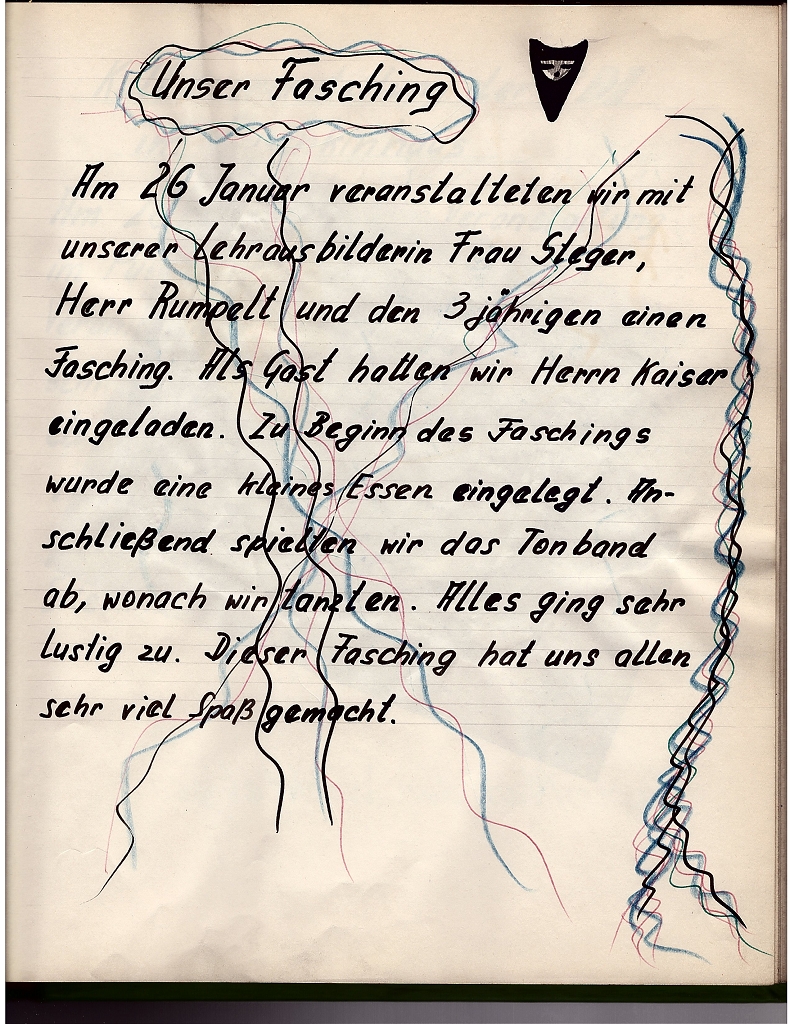 Unser Fasching
Am 26 Januar veranstalteten wir mit
unserer Lehrausbilderin Frau Steger,
Herr Rumpelt und den 3 jährigen einen
Fasching. Als Gast hatten wir Herrn Kaiser
eingeladen. Zu Beginn des Faschings
wurde eine kleines Essen eingelegt. An-
schließend spielten wir das Tonband
ab, wonach wir tanzten. Alles ging sehr
lustig zu. Dieser Fasching hat uns allen
sehr viel Spaß gemacht.